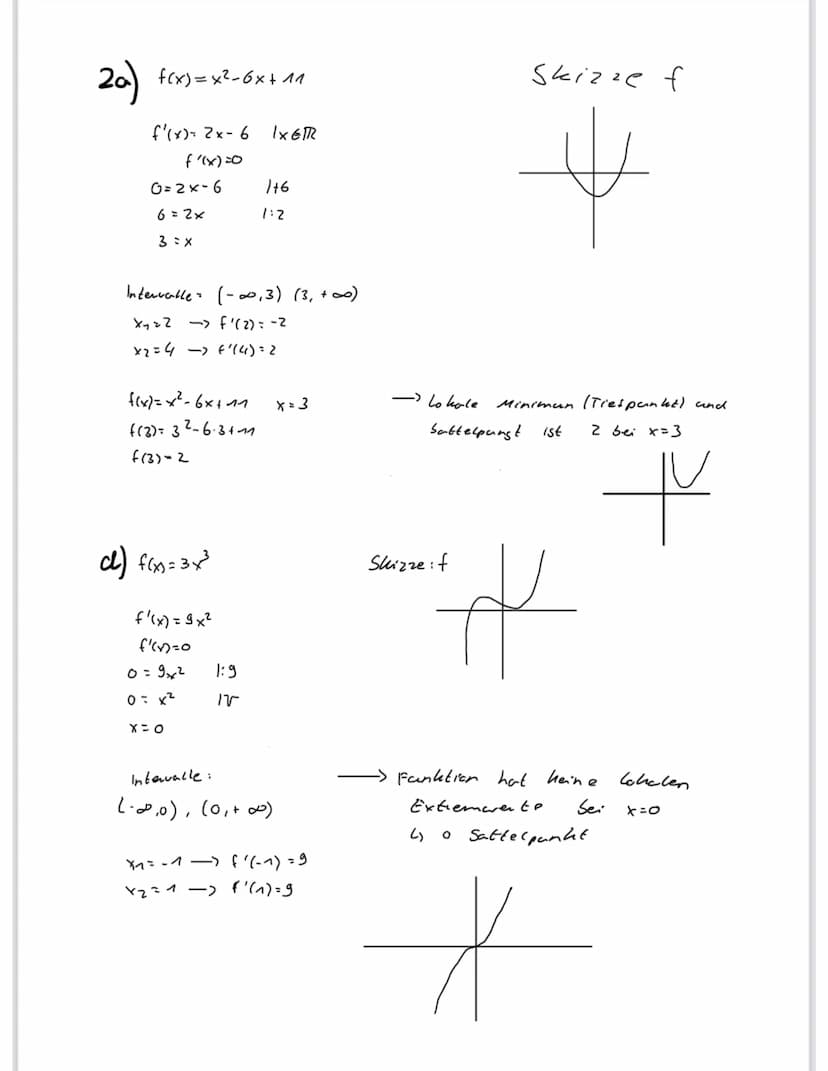 2a) f(x) = x²-6x+11
Skizze f
f'(x) = 2x-6 |x∈ℝ
f'(x)=0
0=2x-6 |+6
6=2x |:2
3=x
Intervalle: (-∞,3) (3,+∞)
x₁=2 → f'(2)=-2
x₂=4 → f'(4)=2
f(x)=x²-6x+11 x=3
f(3)=3²-6·3+11
f(3)=2
→ Lokale Minimum (Tiefpunkt) und
Sattelpungt ist 2 bei x=3
d) f(x)=3x³
Skizze: f
f'(x)=9x²
f'(x)=0
0=9x² |:9
0=x² |√
x=0
Intervalle:
(-∞,0), (0,+∞)
→ Funktion hat keine lokalen
Extremwerte bei x=0
↳ 0 Sattelpunkt
x₁=-1 → f'(-1)=9
x₂=1 → f'(1)=9